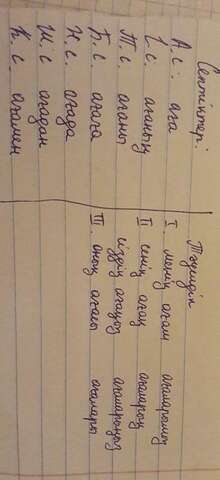 Септіктер:
А.с. аға
І.с. ағаның
Т.с. ағаны
Б.с. ағаға
Ж.с. ағада
Ш.с. ағадан
К.с. ағамен
Тәуелдік
I. менің ағам ағаларымыз
II сенің ағаң ағаларың
сіздің ағаңыз ағаларыңыз
III. оның ағасы ағалары